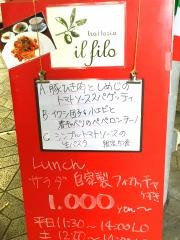 trattoria
il filo
A 豚ひき肉としめじの
トマトソーススパゲッティ
B イワシ団子と小エビと
キャベツのペペロンチーノ
C シンプルトマトソースの
生パスタ
Lunch
サラダ 自家製フォカッチャ
1.000
yen~
平日 11:30~14:00LO
土日